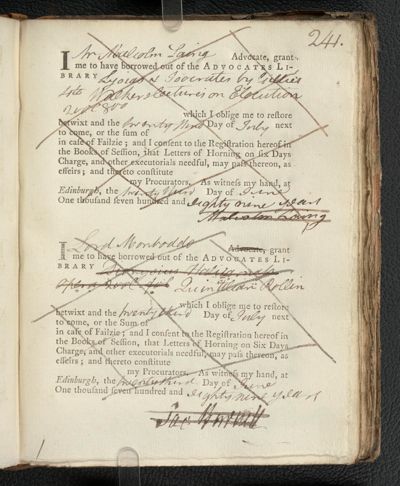 241.
I Mr Malcolm Laing Advocate, grant
me to have borrowed out of the ADVOCATES LI-
BRARY Isocrates by Gillies
4to Walkers Lectures on Elocution
2 vol 8vo
which I oblige me to restore
betwixt and the twenty third Day of July next
to come, or the sum of
in case of Failzie; and I consent to the Registration hereof in
the Books of Session, that Letters of Horning on six Days
Charge, and other executorials needful, may pass thereon, as
effeirs; and thereto constitute
my Procurators. As witness my hand, at
Edinburgh, the twenty third Day of June
One thousand seven hundred and eighty nine years
Malcolm Laing
I Lord Monboddo Advocate, grant
me to have borrowed out of the ADVOCATES LI-
BRARY Dionysius
Opera Quintilian Rollin
which I oblige me to restore
betwixt and the twenty third Day of July next
to come, or the Sum of
in case of Failzie; and I consent to the Registration hereof in
the Books of Session, that Letters of Horning on Six Days
Charge, and other executorials needful, may pass thereon, as
effeirs; and thereto constitute
my Procurators. As witness my hand, at
Edinburgh, the twenty third Day of June
One thousand seven hundred and eighty nine years
Jac